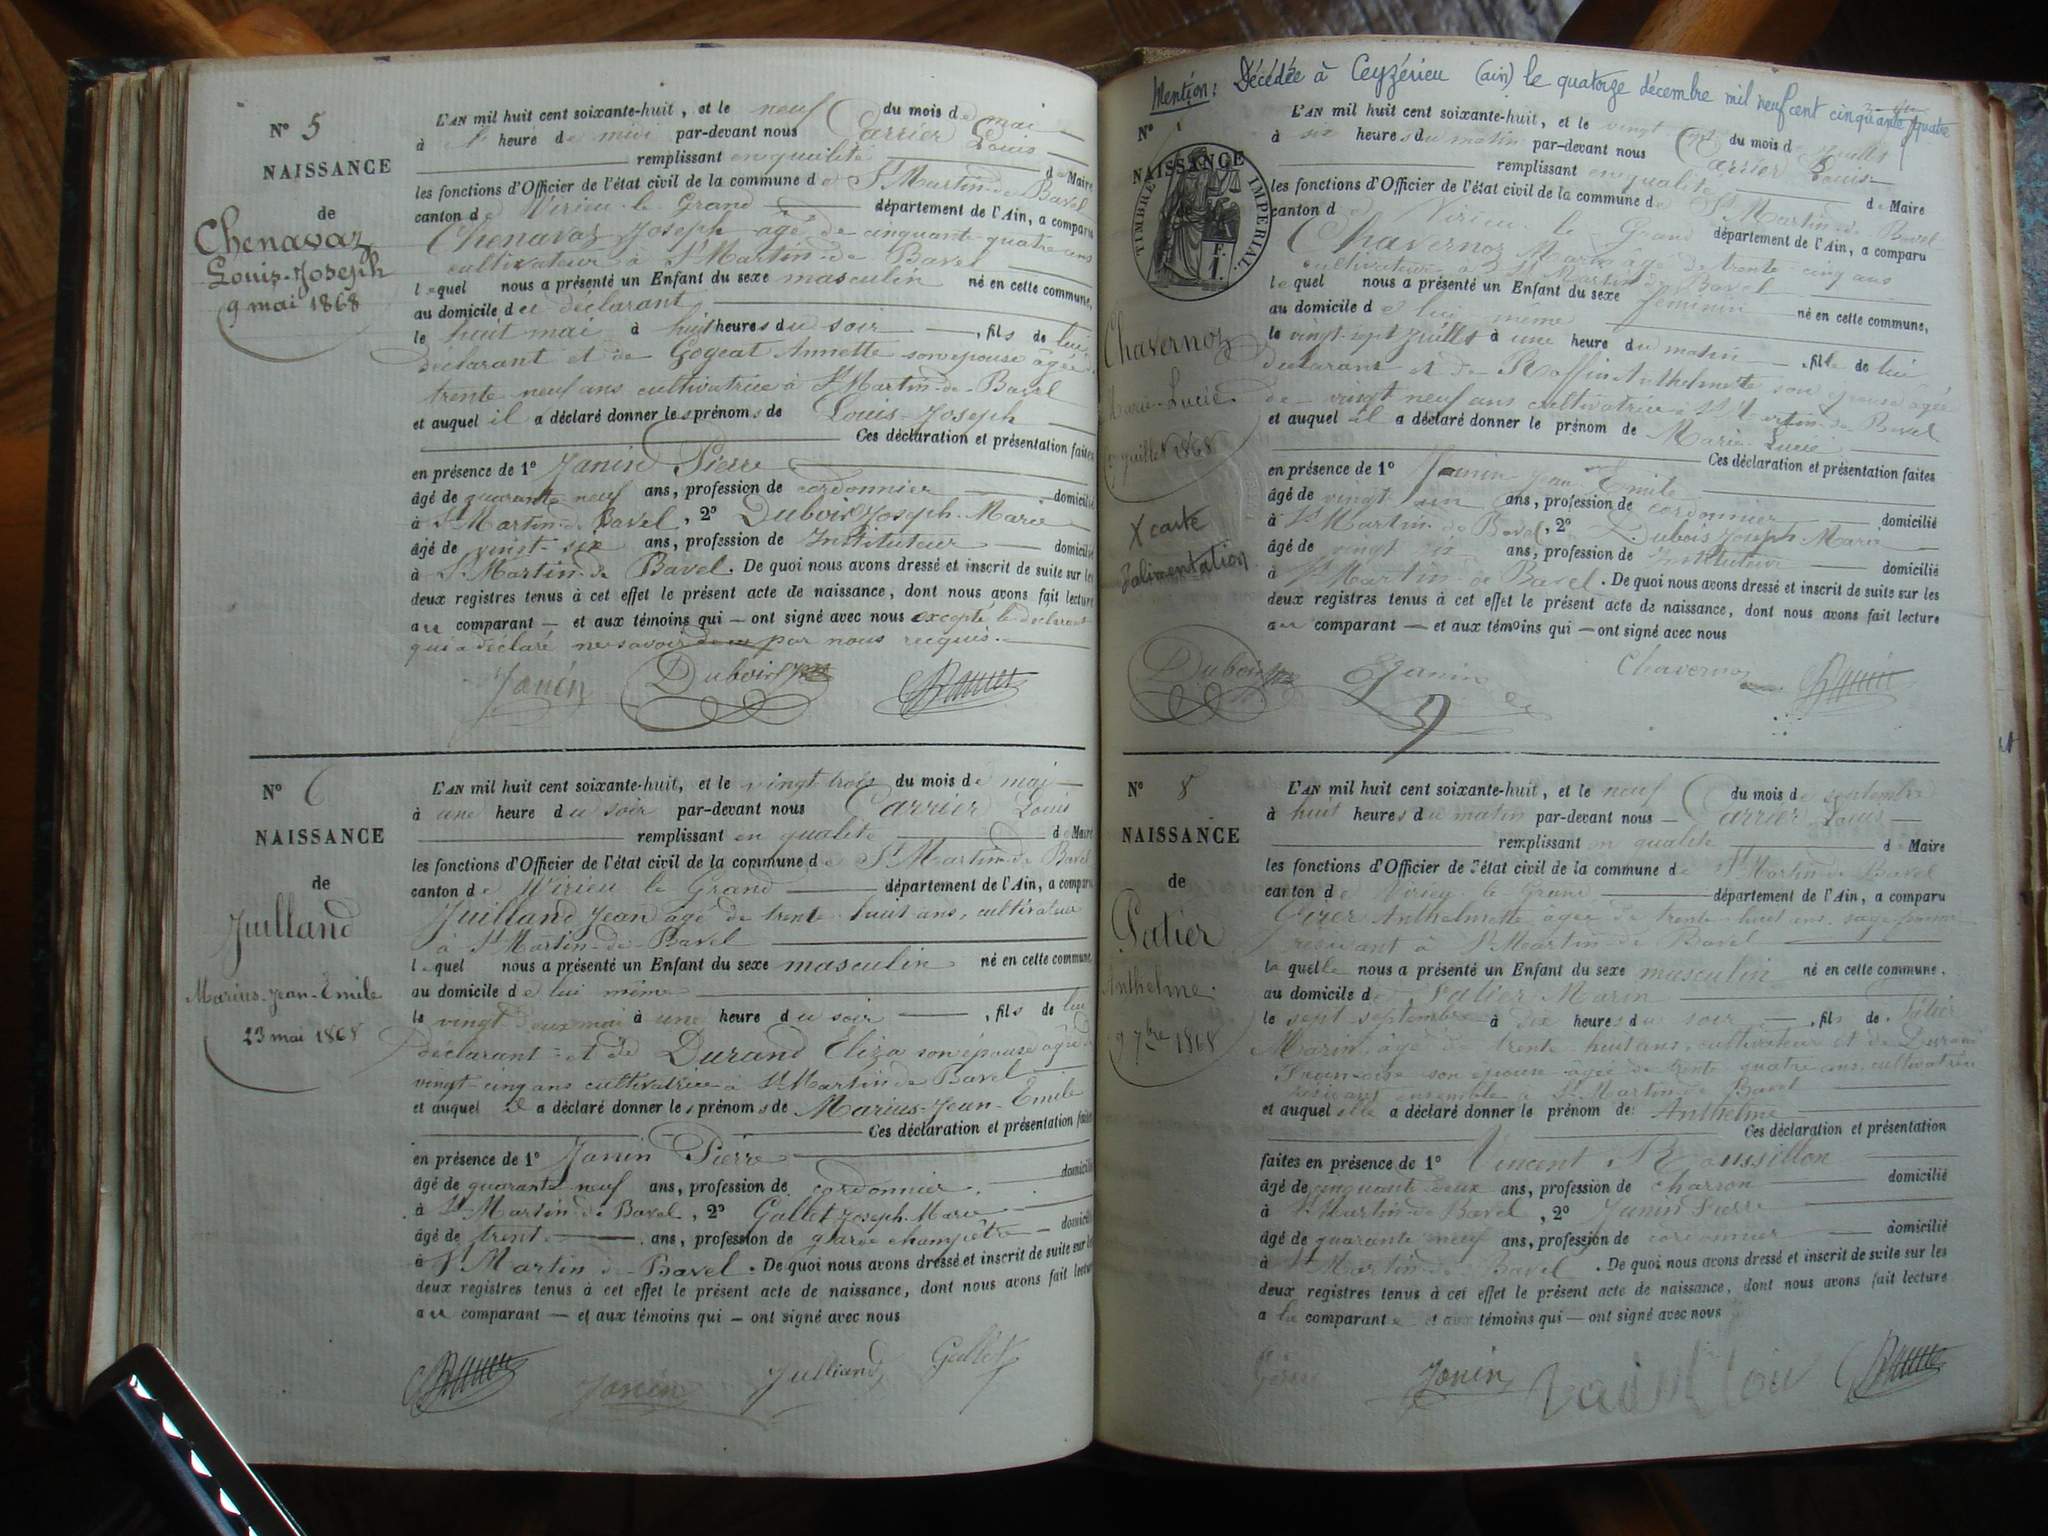 N° 5
NAISSANCE
de
Chenavaz
Louis-Joseph
9 mai 1868
L'AN mil huit cent soixante-huit, et le neuf du mois de mai
à heure de midi par-devant nous Carrier Louis
remplissant en qualité de Maire
les fonctions d'Officier de l'état civil de la commune de St Martin-de Bavel
canton de Virieu-le Grand département de l'Ain, a comparu
Chenavaz Joseph âgé de cinquante-quatre ans
cultivateur à St Martin-de Bavel
lequel nous a présenté un Enfant du sexe masculin né en cette commune,
au domicile du déclarant
le huit mai à huit heures du soir, fils de lui
déclarant et de Gogeat Annette son épouse âgée de
trente neuf ans cultivatrice à St Martin-de-Bavel
et auquel il a déclaré donner les prénoms de Louis-Joseph
Ces déclaration et présentation faites
en présence de 1° Janin Pierre
âgé de quarante-neuf ans, profession de cordonnier domicilié
à St Martin-de Bavel, 2° Dubois Joseph-Marie
âgé de vingt-six ans, profession de Instituteur domicilié
à St Martin-de Bavel. De quoi nous avons dressé et inscrit de suite sur les
deux registres tenus à cet effet le présent acte de naissance, dont nous avons fait lecture
au comparant — et aux témoins qui — ont signé avec nous excepté le déclarant
qui a déclaré ne savoir par nous requis.
Janin Dubois
N° 6
NAISSANCE
de
Juilland
Marius-Jean-Emile
23 mai 1868
L'AN mil huit cent soixante-huit, et le vingt-trois du mois de mai
à une heure du soir par-devant nous Carrier Louis
remplissant en qualité de Maire
les fonctions d'Officier de l'état civil de la commune de St Martin-de Bavel
canton de Virieu le Grand département de l'Ain, a comparu
Juilland Jean âgé de trente-huit ans, cultivateur
à St Martin-de-Bavel
lequel nous a présenté un Enfant du sexe masculin né en cette commune,
au domicile de lui même
le vingt deux mai à une heure du soir, fils de lui
déclarant et de Durand Eliza son épouse âgée de
vingt-cinq ans cultivatrice à St Martin de Bavel
et auquel il a déclaré donner les prénoms de Marius-Jean-Emile
Ces déclaration et présentation faites
en présence de 1° Janin Pierre
âgé de quarante neuf ans, profession de cordonnier domicilié
à St Martin de Bavel, 2° Gallet Joseph-Marie
âgé de trente ans, profession de garde champêtre domicilié
à St Martin de Bavel. De quoi nous avons dressé et inscrit de suite sur les
deux registres tenus à cet effet le présent acte de naissance, dont nous avons fait lecture
au comparant — et aux témoins qui — ont signé avec nous
Janin Juilland Gallet
Mention: Décédée à Ceyzérieu (ain) le quatorze décembre mil neuf cent cinquante quatre
N°
NAISSANCE
TIMBRE IMPERIAL
Chavernoz
Marie-Lucie
juillet 1868
X carte
d'alimentation
L'AN mil huit cent soixante-huit, et le vingt-sept du mois de juillet
à six heures du matin par-devant nous Carrier Louis
remplissant en qualité de Maire
les fonctions d'Officier de l'état civil de la commune de St Martin-de Bavel
canton de Virieu le Grand département de l'Ain, a comparu
Chavernoz Marin âgé de trente-cinq ans
cultivateur à St Martin de Bavel
lequel nous a présenté un Enfant du sexe féminin né en cette commune,
au domicile de lui même
le vingt-sept juillet à une heure du matin, fille de lui
déclarant et de Roffin Anthelmette son épouse âgée
de vingt neuf ans cultivatrice à St Martin-de Bavel
et auquel il a déclaré donner le prénom de Marie Lucie
Ces déclaration et présentation faites
en présence de 1° Janin Jean Emile
âgé de vingt un ans, profession de cordonnier domicilié
à St Martin-de Bavel, 2° Dubois Joseph-Marie
âgé de vingt six ans, profession de Instituteur domicilié
à St Martin de Bavel. De quoi nous avons dressé et inscrit de suite sur les
deux registres tenus à cet effet le présent acte de naissance, dont nous avons fait lecture
au comparant — et aux témoins qui — ont signé avec nous
Dubois EJanin Chavernoz
N° 8
NAISSANCE
de
Patier
Anthelme
9 7bre 1868
L'AN mil huit cent soixante-huit, et le neuf du mois de septembre
à huit heures du matin par-devant nous Carrier Louis
remplissant en qualité de Maire
les fonctions d'Officier de l'état civil de la commune de St Martin-de Bavel
canton de Virieu-le Grand département de l'Ain, a comparu
Anthelmette âgée de trente-huit ans, sage-femme
résidant à St Martin-de Bavel
laquelle nous a présenté un Enfant du sexe masculin né en cette commune.
au domicile de Patier Marin
le sept septembre à dix heures du soir, fils de Patier
Marin, âgé de trente-huit ans, cultivateur et de Durand
Françoise son épouse âgée de trente quatre ans, cultivatrice
résidant ensemble à St Martin de Bavel
et auquel elle a déclaré donner le prénom de: Anthelme
Ces déclaration et présentation
faites en présence de 1° Vincent Roussillon
âgé de cinquante deux ans, profession de charron domicilié
à St Martin-de Bavel, 2° Janin Pierre
âgé de quarante neuf ans, profession de cordonnier domicilié
à St Martin de Bavel. De quoi nous avons dressé et inscrit de suite sur les
deux registres tenus à cet effet le présent acte de naissance, dont nous avons fait lecture
a la comparante et aux témoins qui — ont signé avec nous
Janin